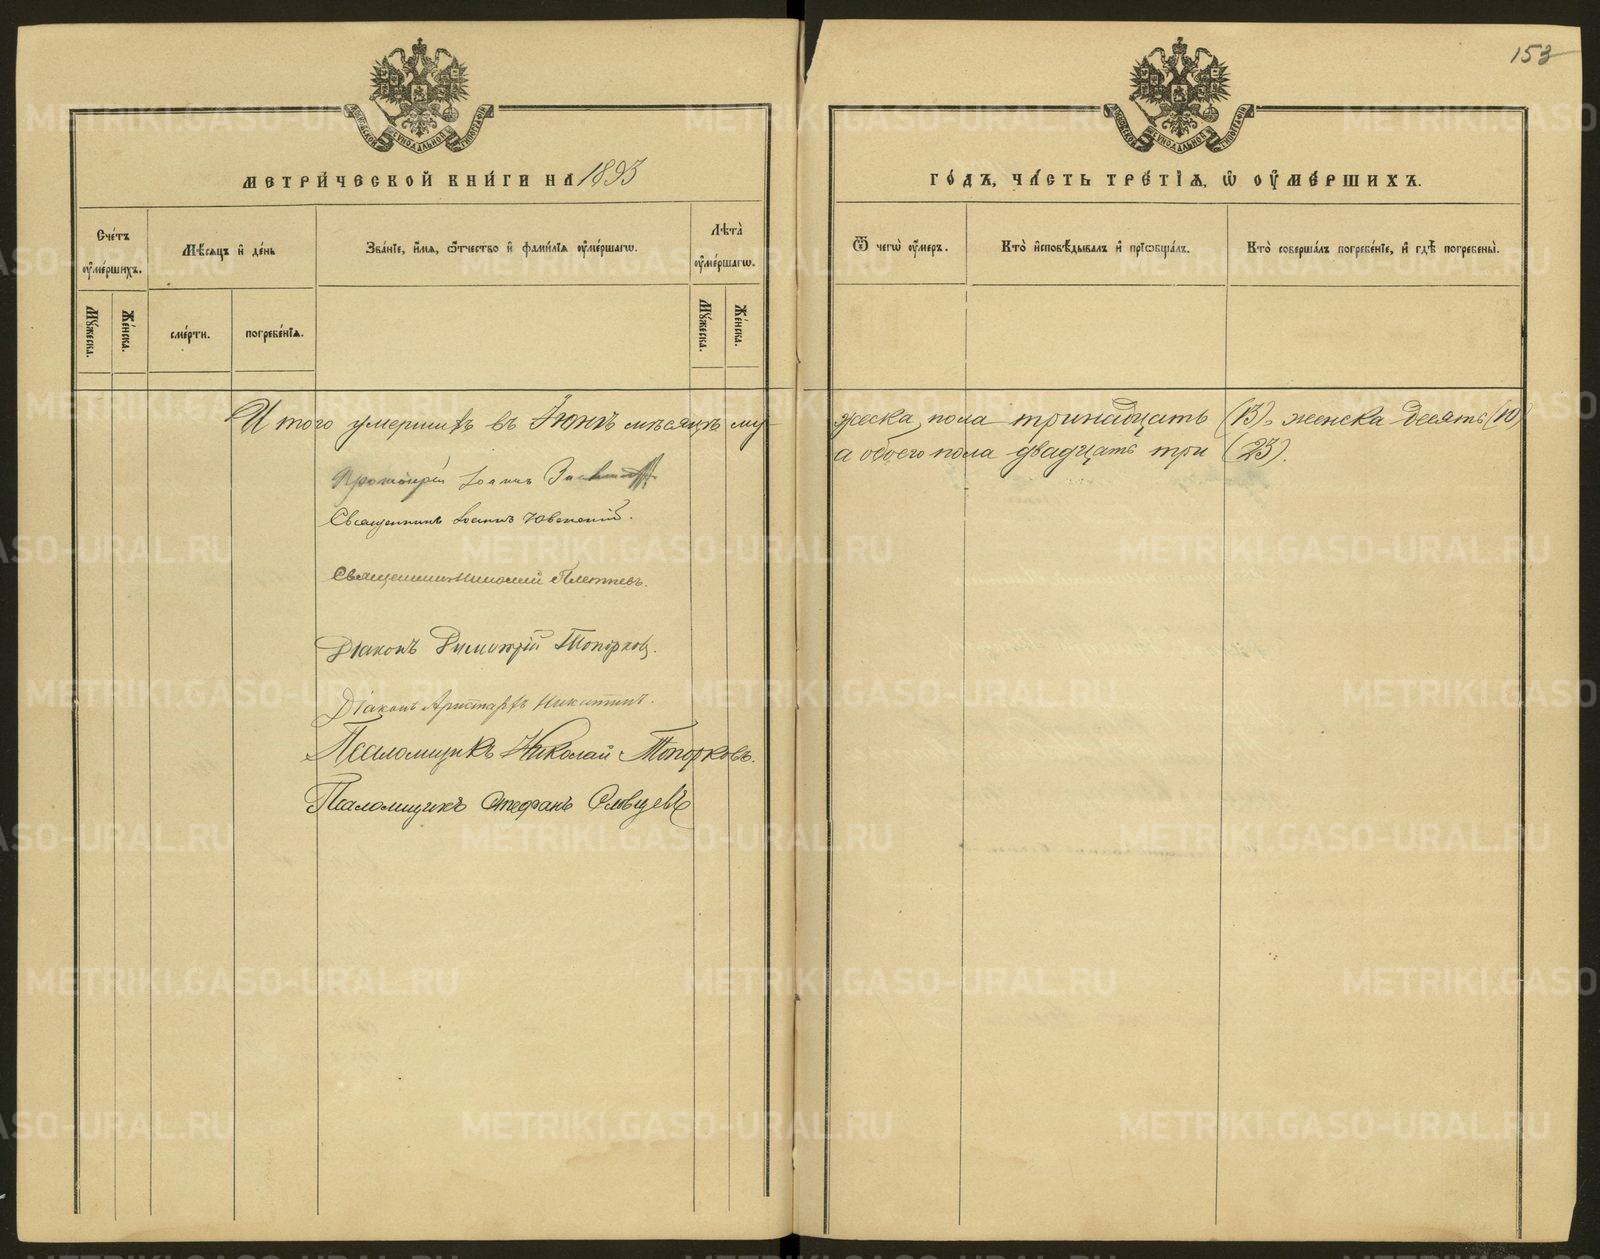 153
МОСКОВСКОЙ СѴНОДАЛЬНОЙ ТИПОГРАФІИ
МОСКОВСКОЙ СѴНОДАЛЬНОЙ ТИПОГРАФІИ
МЕТРИ́ЧЕСКОЙ КНИ́ГИ НА 1893
ГО́ДЪ, ЧА́СТЬ ТРЕ́ТІѦ, Ѡ҆ ОУ҆МЕ́РШИХЪ.
Сче́тъ оу҆ме́ршихъ.
Мѣ́сяцъ и҆ де́нь
Зва́нїе, и҆́мѧ, ѻ҆́тчество и҆ фами́лїѧ оу҆ме́ршагѡ.
Лѣ́та̀ оу҆ме́ршагѡ.
Ѿ чегѡ̀ оу҆́меръ.
Кто̀ и҆сповѣ́дывалъ и҆ прїѡбща́лъ.
Кто̀ соверша́лъ погребе́нїе, и҆ гдѣ̀ погребены̀.
Мꙋ́жеска.
Же́нска.
сме́рти.
погребе́нїѧ.
Мꙋ́жеска.
Же́нска.
Итого умершихъ въ Іюнѣ мѣсяцѣ мужеска пола тринадцать (13), женска десять (10)
а обоего пола двадцать три (23).
Протоіерей Іоаннъ
Священникъ Іоаннъ
Священникъ Николай Плетневъ.
Діаконъ Димитрій Топорковъ.
Діаконъ Аристархъ Никитинъ.
Псаломщикъ Николай Топорковъ.
Псаломщикъ Стефанъ Словцевъ
METRIKI.GASO-URAL.RU